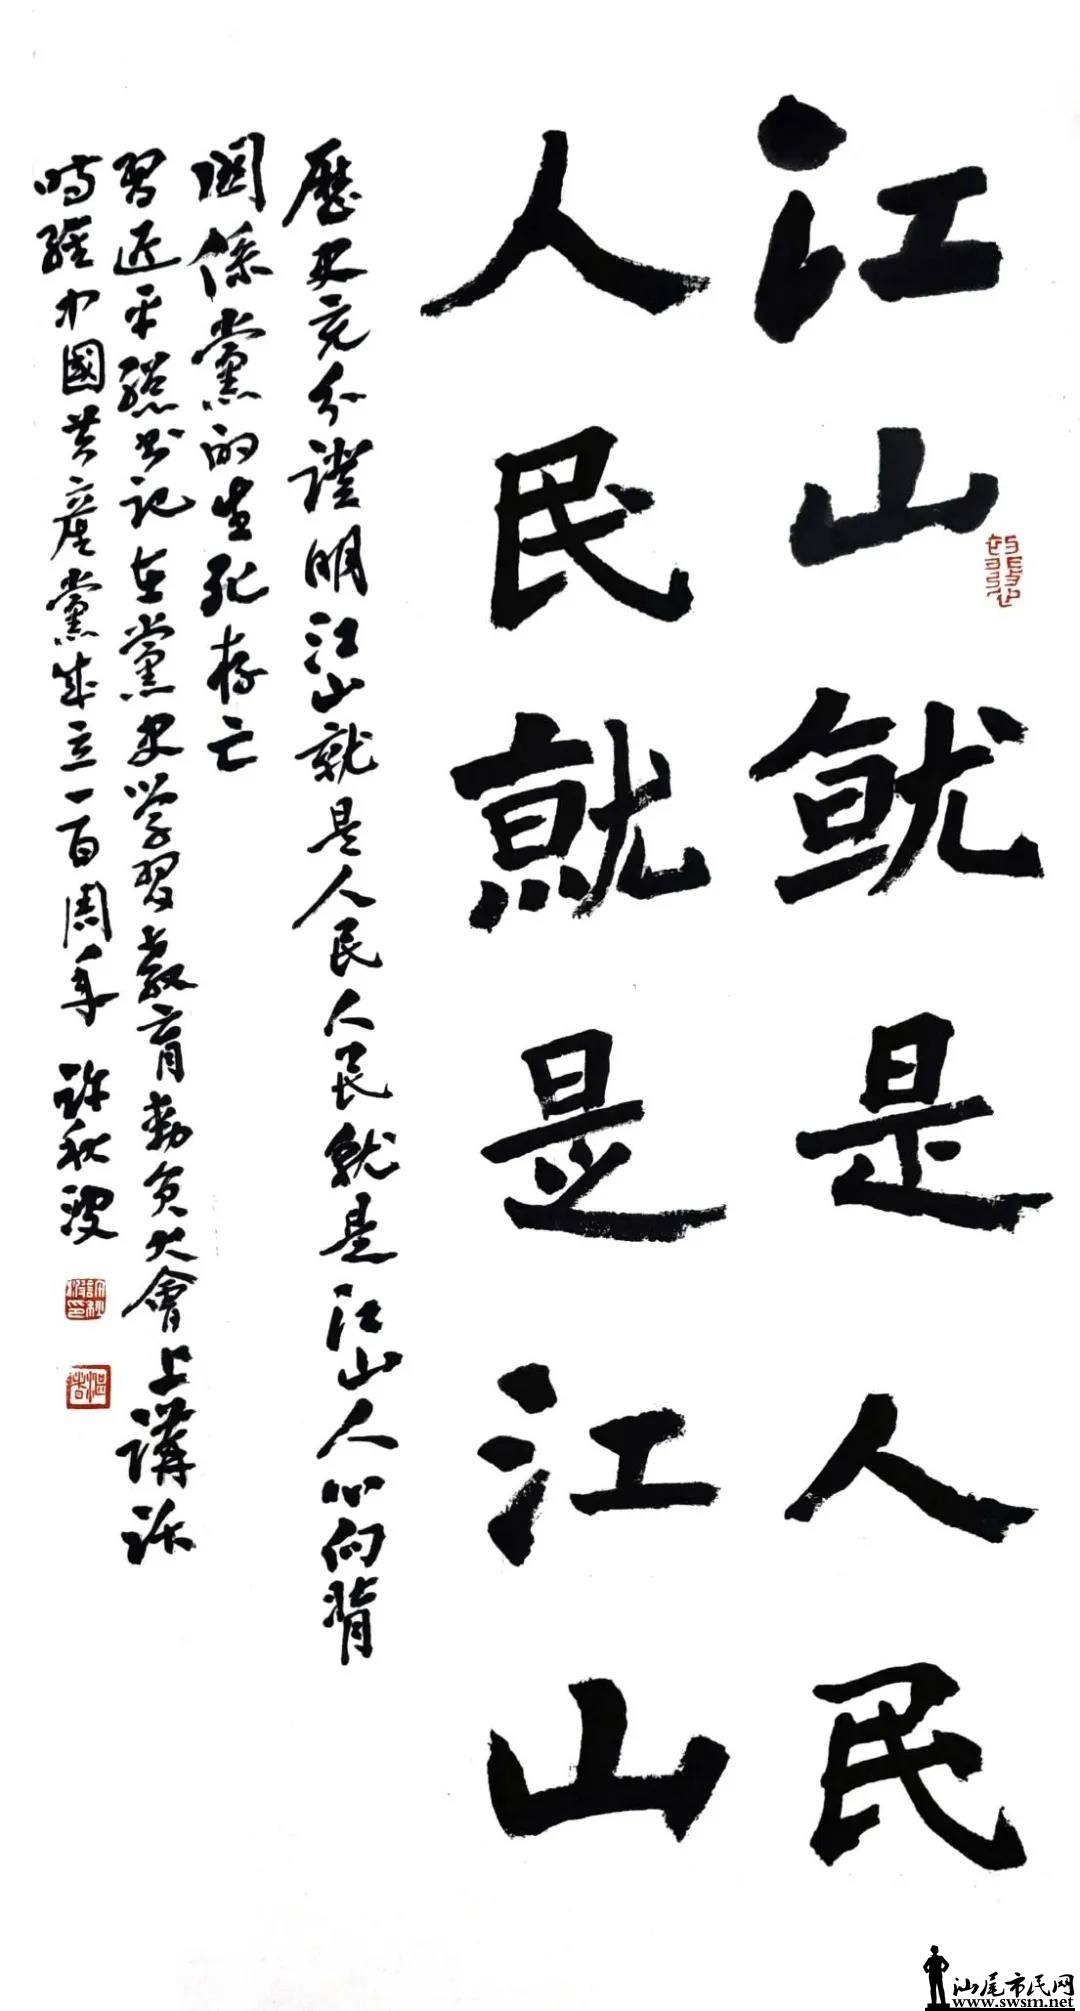 江山就是人民
人民就是江山
歷史充分證明江山就是人民人民就是江山人心向背
関係黨的生死存亡
習近平總书记在黨史学習教育動員大會上講话
時維中國共產黨成立一百周年 許秋波
汕尾市民网
www.swsm.net